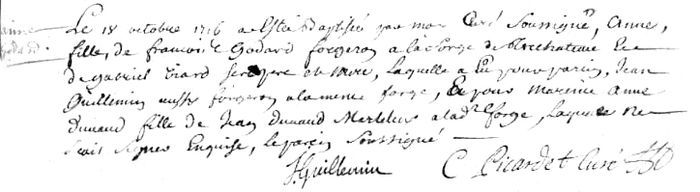 anne
Godard
Le 18 octobre 1716 a esté Baptisée par moy Curé Soussigné, anne,
fille, de francois Godard forgeron a la forge de Et
de gabriel Liard ses pere et Mere, Laquelle a Eu pour parin, Jean
Guillemin aussy forgeron a la meme forge, Et pour Marinne Anne
Dunand fille de Jean Dunand Marteleur a lad.e forge, Laquelle ne
scait signer Enquise, Le parein Soussigné
J Guillemin C Picardet Curé